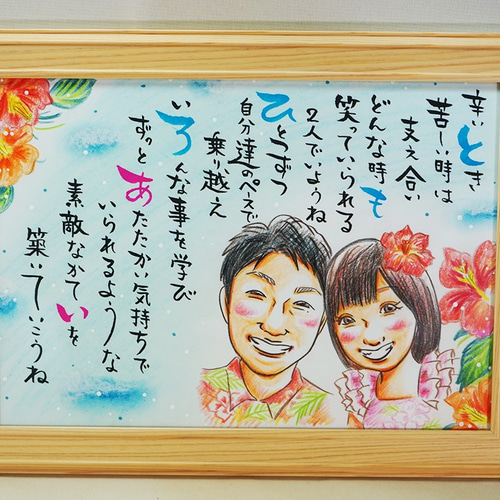 辛いとき
苦しい時は
支え合い
どんな時も
笑っていられる
2人でいようね
ひとつずつ
自分達のペースで
乗り越え
いろんな事を学び
ずっとあたたかい気持ちで
いられるような
素敵なかていを
築いていこうね